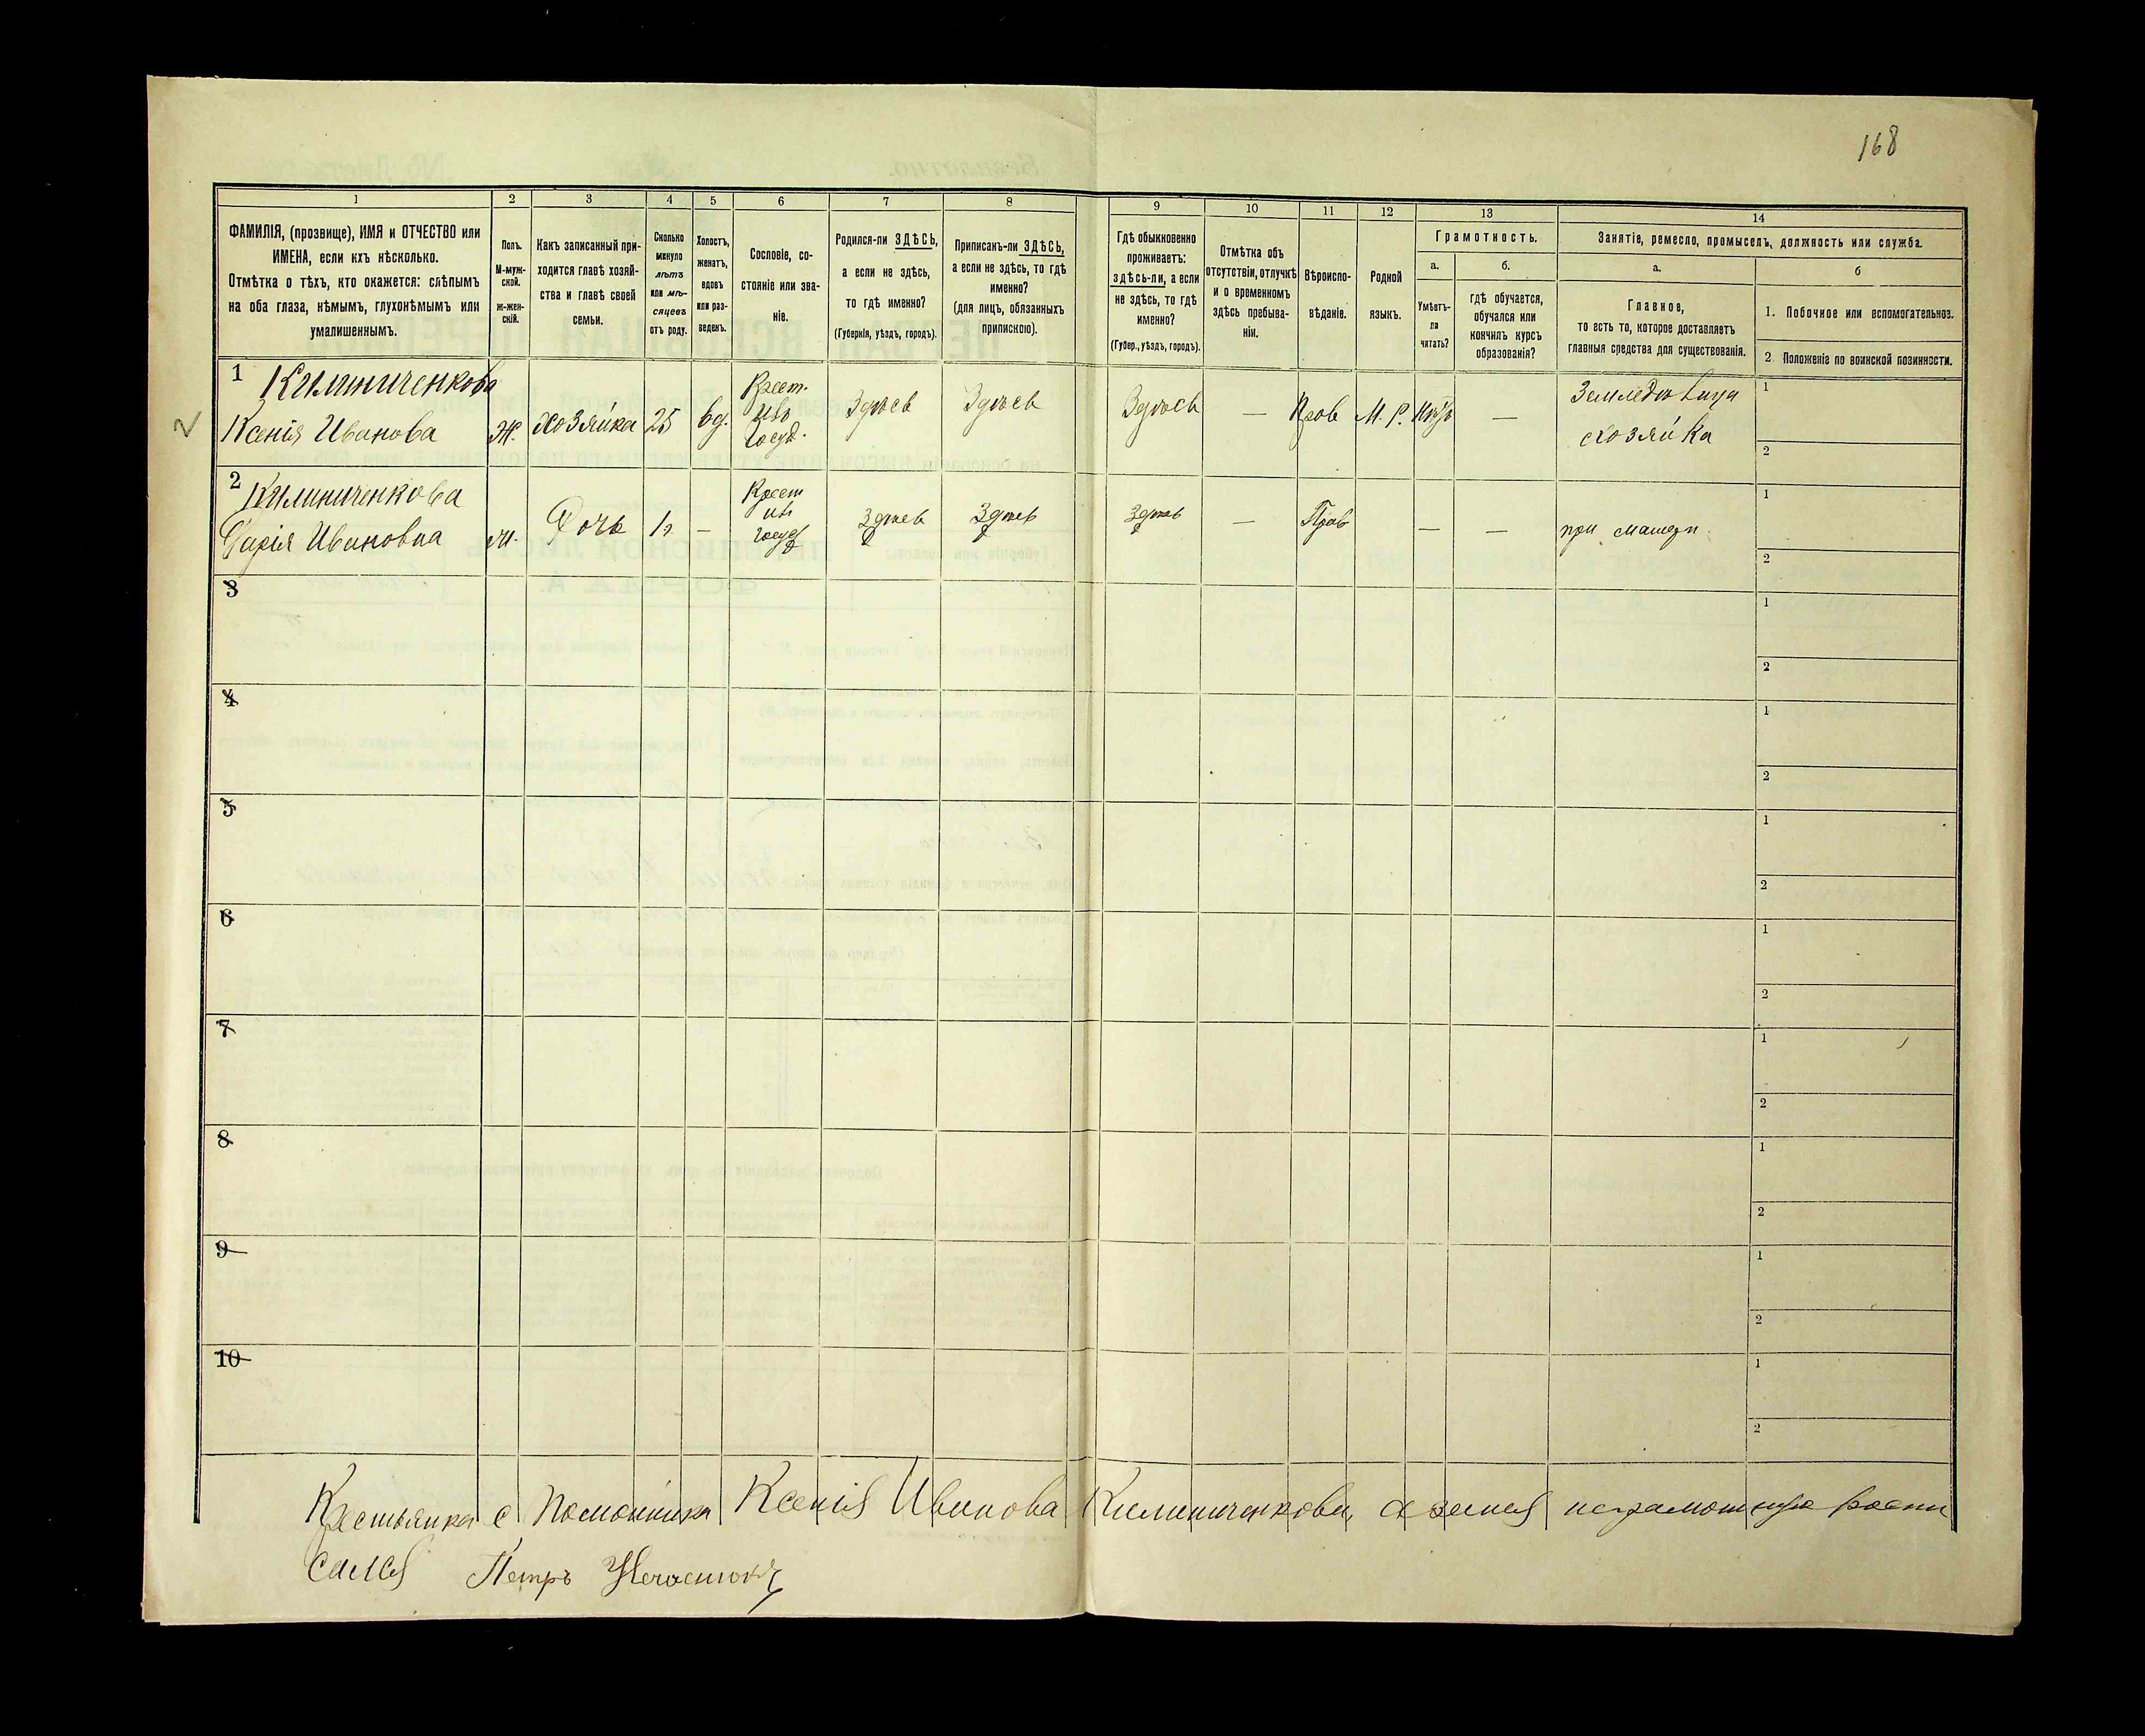 168
1 2 3 4 5 6 7 8 9 10 11 12 13 14
ФАМИЛІЯ, (прозвище), ИМЯ и ОТЧЕСТВО или
ИМЕНА, если кхъ нѣсколько.
Отмѣтка о тѣхъ, кто окажется: слѣпымъ
на оба глаза, нѣмымъ, глухонѣмымъ или
умалишеннымъ.
Полъ.
М-муж-
ской.
Ж-жен-
скій.
Какъ записанный при-
ходится главѣ хозяй-
ства и главѣ своей
семьи.
Сколько
минуло
лѣтъ
или мѣ-
сяцевъ
отъ роду.
Холостъ,
женатъ,
вдовъ
или раз-
веденъ.
Сословіе, со-
стояніе или зва-
ніе.
Родился-ли ЗДѢСЬ,
а если не здѣсь,
то гдѣ именно?
(Губернія, уѣздъ, городъ).
Приписанъ-ли ЗДѢСЬ,
а если не здѣсь, то гдѣ
именно?
(для лицъ, обязанныхъ
припискою).
Гдѣ обыкновенно
проживаетъ:
здѣсь-ли, а если
не здѣсь, то гдѣ
именно?
(Губер., уѣздъ, городъ).
Отмѣтка объ
отсутствіи, отлучкѣ
и о временномъ
здѣсь пребыва-
ніи.
Вѣроиспо-
вѣданіе.
Родной
языкъ.
Грамотность.
а.
Умѣетъ-
ли
читать?
б.
гдѣ обучается,
обучался или
кончилъ курсъ
образованія?
Занятіе, ремесло, промыселъ, должность или служба.
а.
Главное,
то есть то, которое доставляетъ
главныя средства для существованія.
б
1. Побочное или вспомогательное.
2. Положеніе по воинской повинности.
1 Килиниченкова
Ксенія Иванова
Ж.
хозяйка
25
вд.
Крест.
изъ
госуд.
Здѣсь
Здѣсь
Здѣсь
—
Прав
М. Р.
—
Земледѣлица
хозяйка
1
2
2 Килиниченкова
Дарія Ивановна
Ж.
Дочь
1г
—
Крест
изъ
госуд
Здѣсь
Здѣсь
Здѣсь
—
Прав
—
—
при матери
1
2
3
1
2
4
1
2
5
1
2
6
1
2
7
1
2
8
1
2
9
1
2
10
1
2
Крестьянка с Ксенія Иванова Килиниченкова, а за нея неграмотную распи
сался Петръ